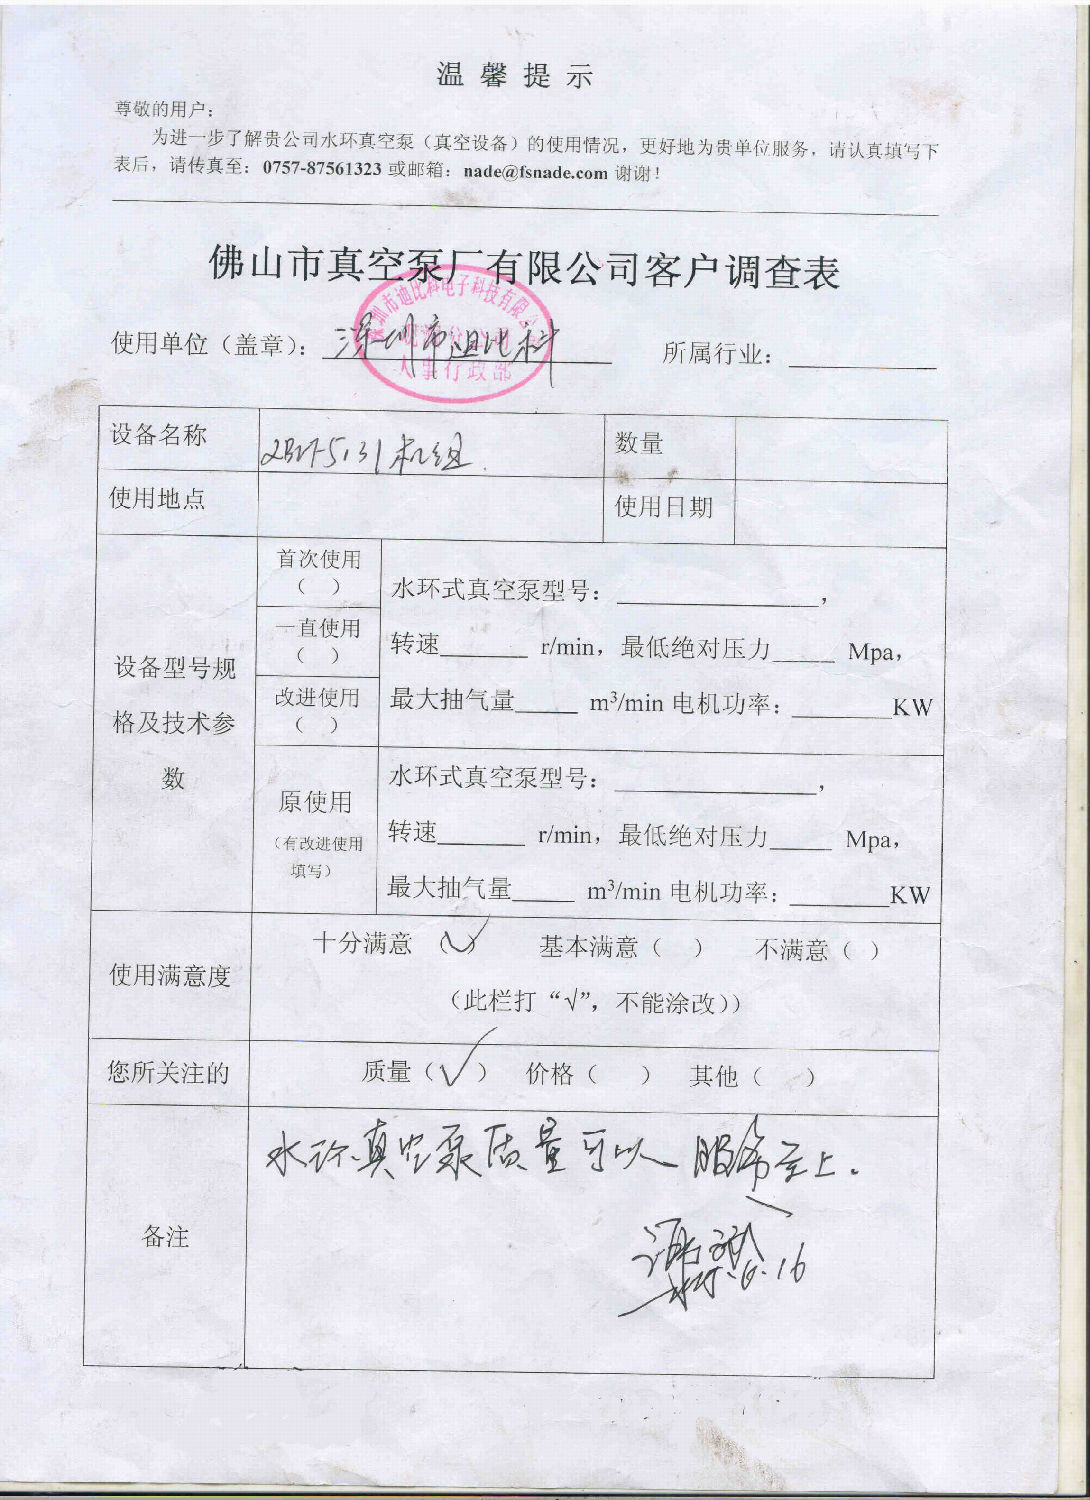 温馨提示
尊敬的用户：
为进一步了解贵公司水环真空泵（真空设备）的使用情况，更好地为贵单位服务，请认真填写下
表后，请传真至：0757-87561323 或邮箱：nade@fsnade.com 谢谢！
佛山市真空泵厂有限公司客户调查表
深圳市迪比科电子科技有限公
分公司
人事行政部
使用单位（盖章）： 深圳市迪比科 所属行业：
设备名称 2BV-5131机组. 数量
使用地点 使用日期
设备型号规
格及技术参
数
首次使用
（ ）
一直使用
（ ）
改进使用
（ ）
水环式真空泵型号：，
转速 r/min，最低绝对压力 Mpa，
最大抽气量 m³/min 电机功率： KW
原使用
（有改进使用
填写）
水环式真空泵型号：，
转速 r/min，最低绝对压力 Mpa，
最大抽气量 m³/min 电机功率： KW
使用满意度
十分满意（√） 基本满意（ ） 不满意（ ）
（此栏打“√”，不能涂改））
您所关注的 质量（√） 价格（ ） 其他（ ）
备注
水环真空泵质量可以 服务至上。
16